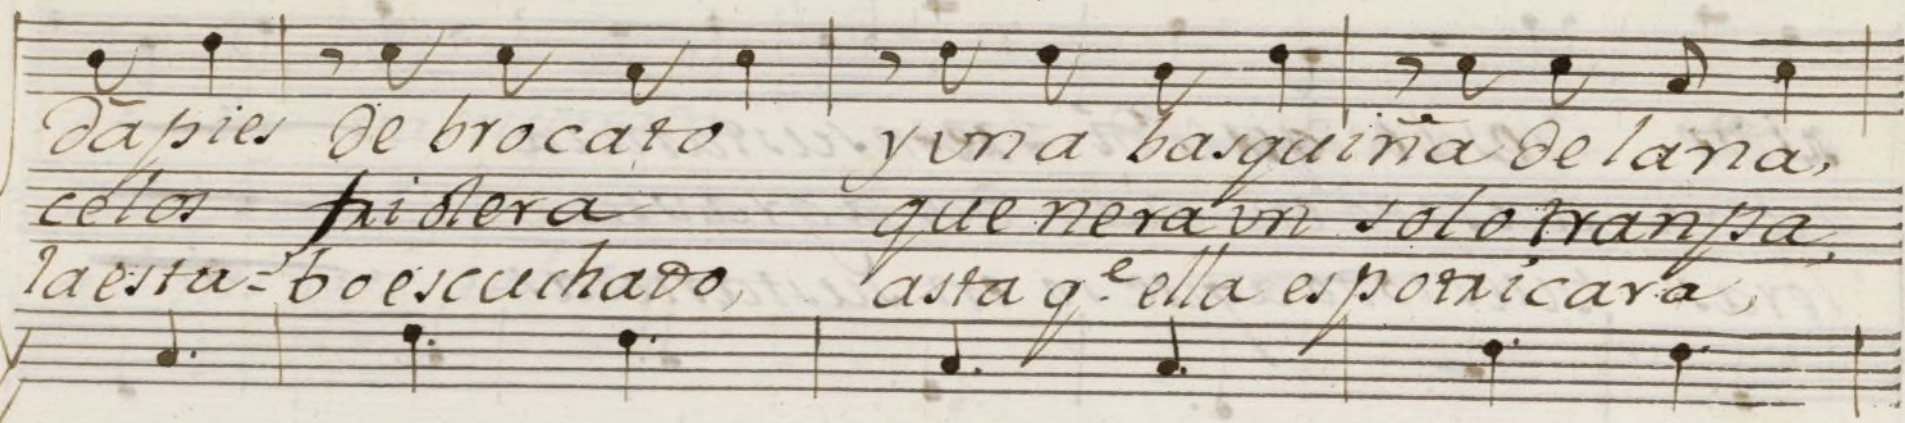 dāpies de brocato y vna basquiña de lana,
celos hisiera que nera vn solo tranpa,
la estu= bo escuchado, asta q.e ella espotricara,